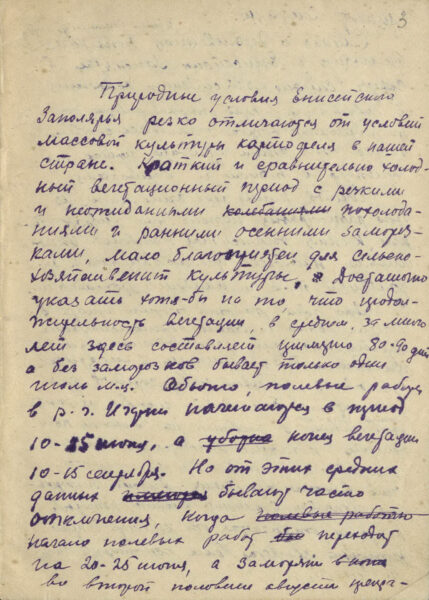 3
Природные условия Енисейского
Заполярья резко отличаются от условий
массовой культуры картофеля в нашей
стране. Краткий и сравнительно холод-
ный вегетационный период с резкими
и неожиданными колебаниями похолода-
ниями и ранними осенними замороз-
ками, мало благоприятен для сельско-
хозяйственных культуры, Достаточно
указать хотя-бы на то, что продол-
жительность вегетации, в среднем, за много
лет здесь составляет примерно 80-90 дней
а без заморозков бывает только один
июль м-ц. Обычно, полевые работы
в р. г. Игарки начинаются в период
10-15 июня, а уборка конец вегетации
10-15 сентября. Но от этих средних
данных бывают часто
отклонения, когда полевые работы
начало полевых работ переходит
на 20-25 июня, а заморозки в
во второй половине августа прекра-